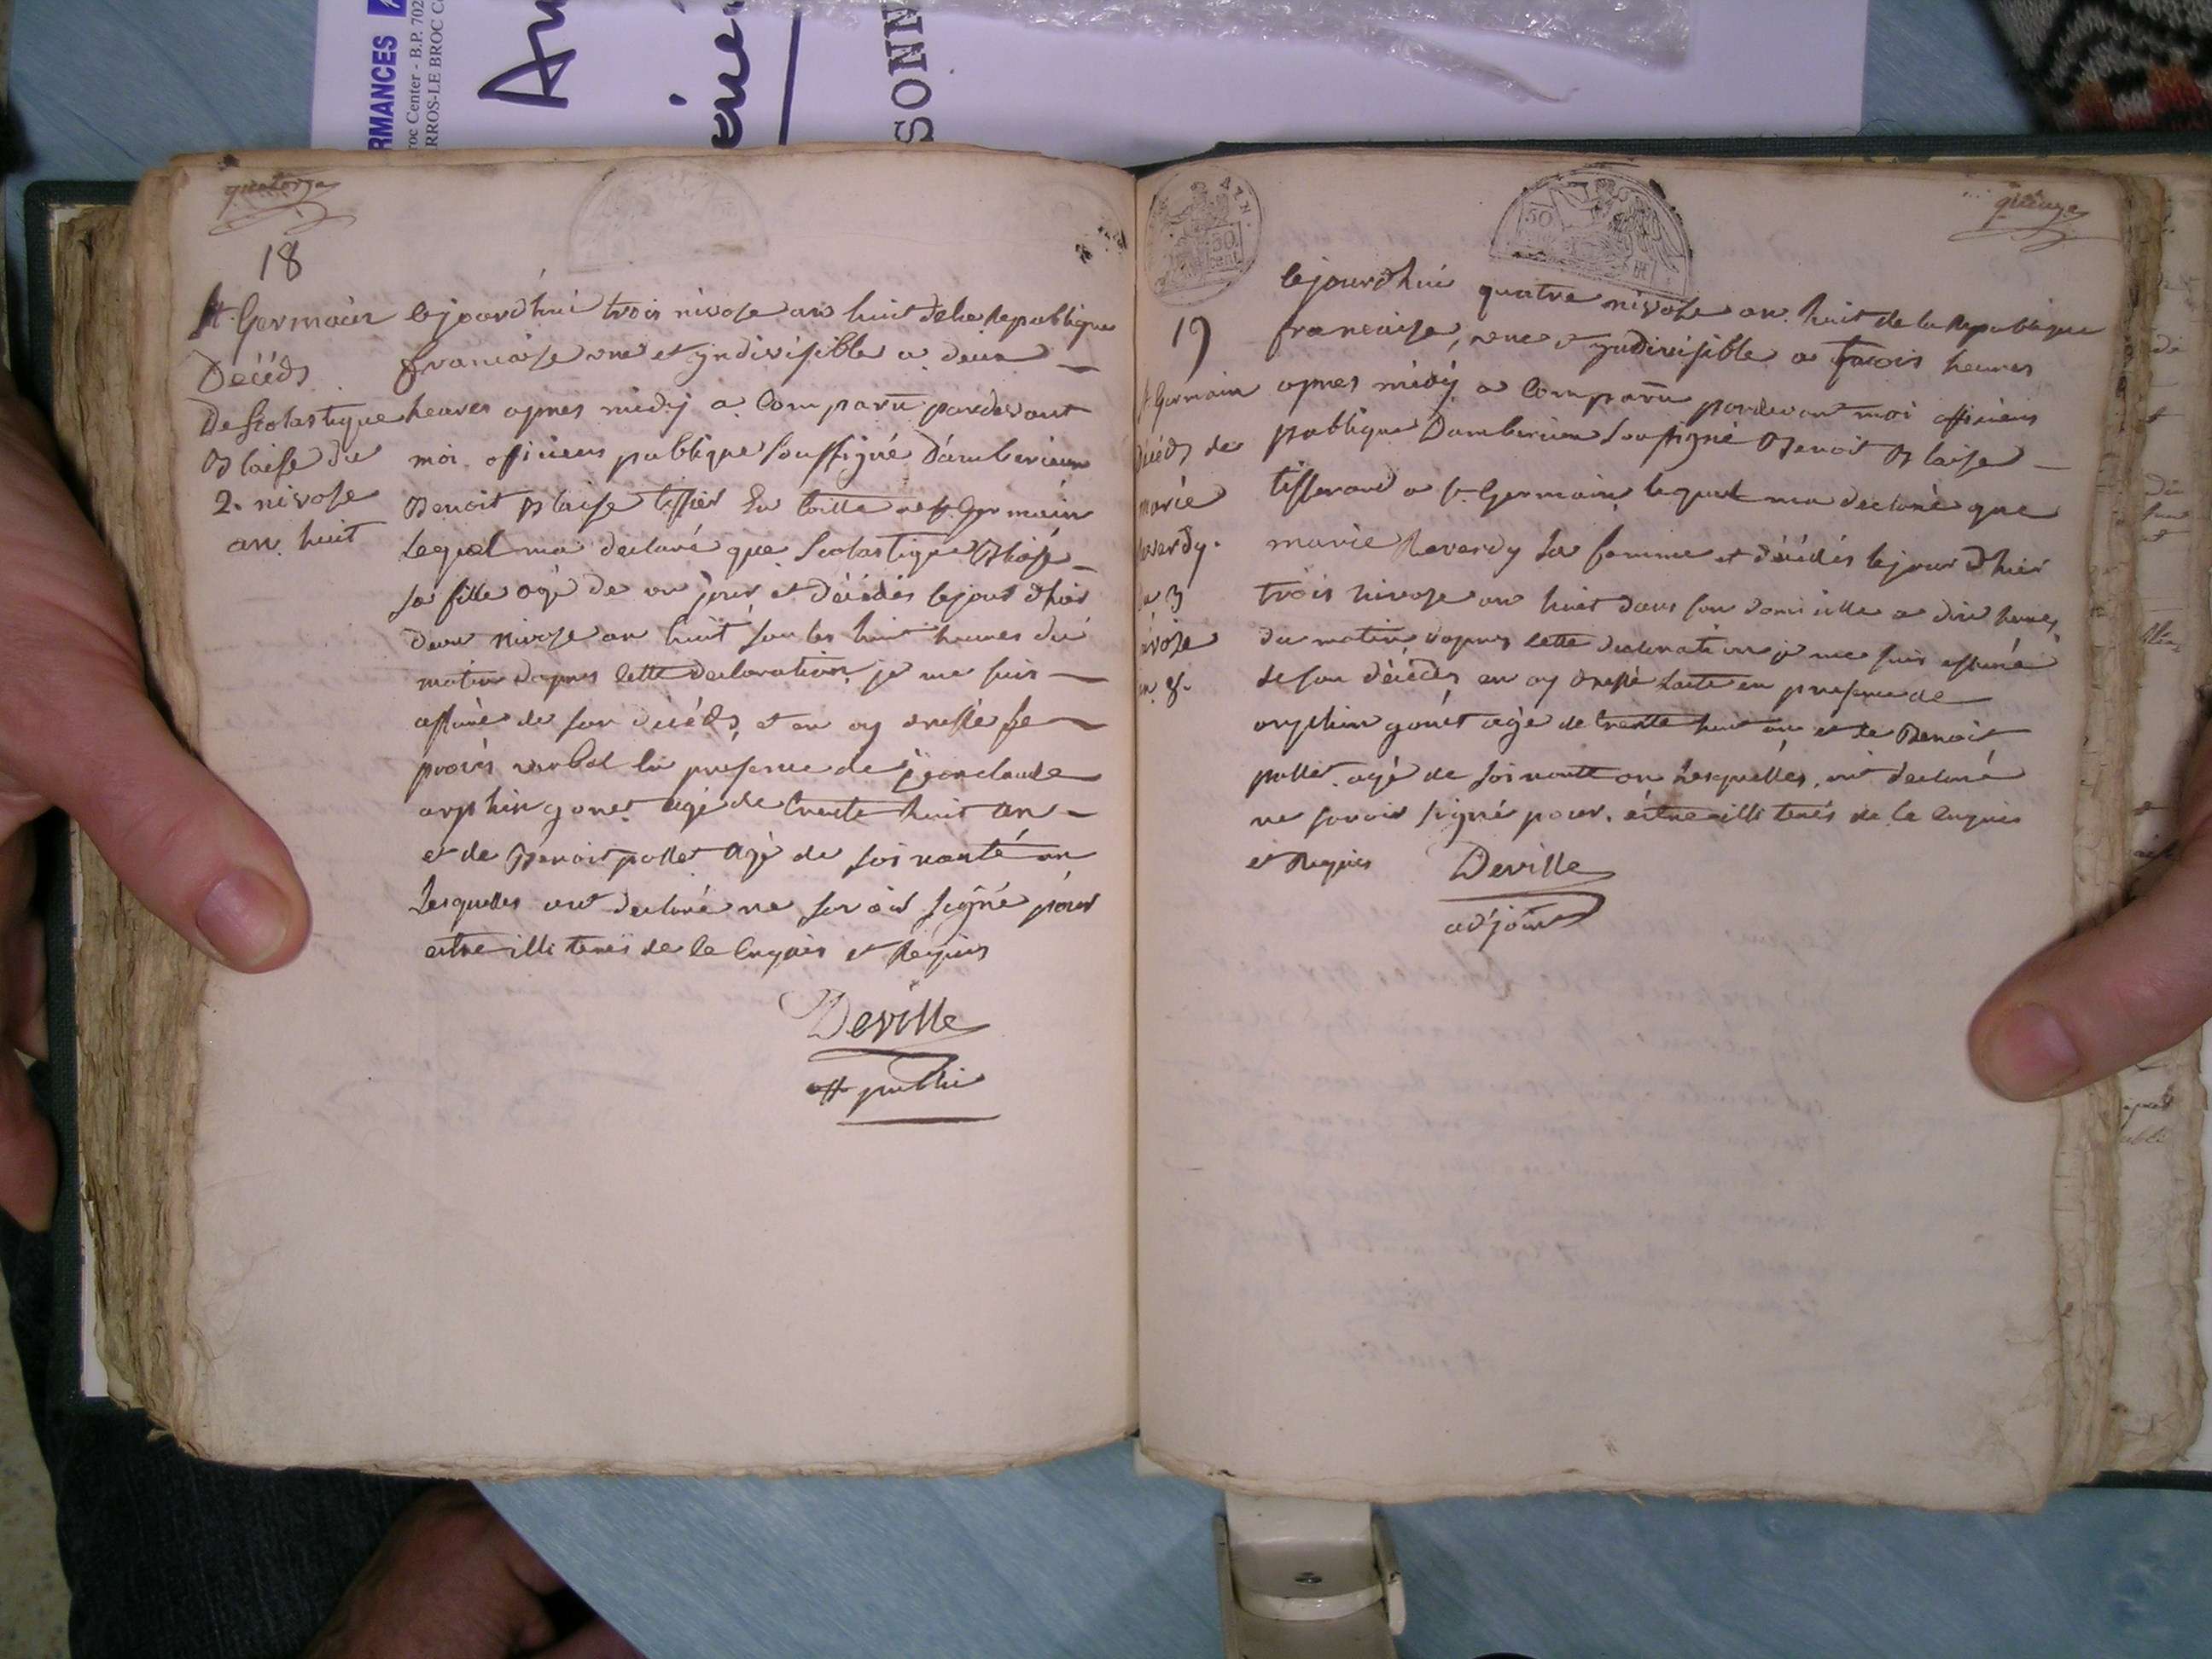 RMANCES
roc Center - B.P. 702
RROS-LE BROC C
SONN
quatorze
18
St Germain
Décéds
De Scolastique
Blaise du
2. nivose
an huit
lejourdhui trois nivose an huit de la Republique
francaise une et yndivisible a deux
heures apres midy a Comparu pardevant
moi officiers publique Soussigné D'amberieux
Benoit Blaise tissier En toille a st Germain
Lequel ma declaré que Scolastique Blaise
sa fille agé de un jour et décédés lejour d'hier
deux nivose an huit sur les huit heures du
matin dapres cette declaration je me suis
assuré de son décéds et en ay dressé le
procés verbal En presence de jean claude
orphin gonet agé de trente huit an
et de Benoit pollet agé de soixante an
Lesquelles ont declaré ne savoir signé pour
estre illi terés de ce Enquis et Requis
Deville
off public
quinze
50
cent
50
RF
19
lejourdhui quatre nivose an huit de la Republique
francaise, une et yndivisible a trois heures
apres midy a Comparu pardevant moi officiers
publique Damberieux Soussigné Benoit Blaise
tisserand a st Germain lequel ma declaré que
marie Reverdy sa femme et décédés lejour d'hier
trois nivose an huit dans son domicille a dix heures
du matin dapres cette declaration je me suis assuré
de son décédes en ay dressé lacte en presence de
orphin gonét agé de trente huit an et de Benoit
pollet agé de soixante an Lesquelles ont declaré
ne savoir signé pour estre illi terés de ce Enquis
et Requis
Deville
adjoint
t Germain
décéds de
marie
reverdy
3
ivose
an 8.